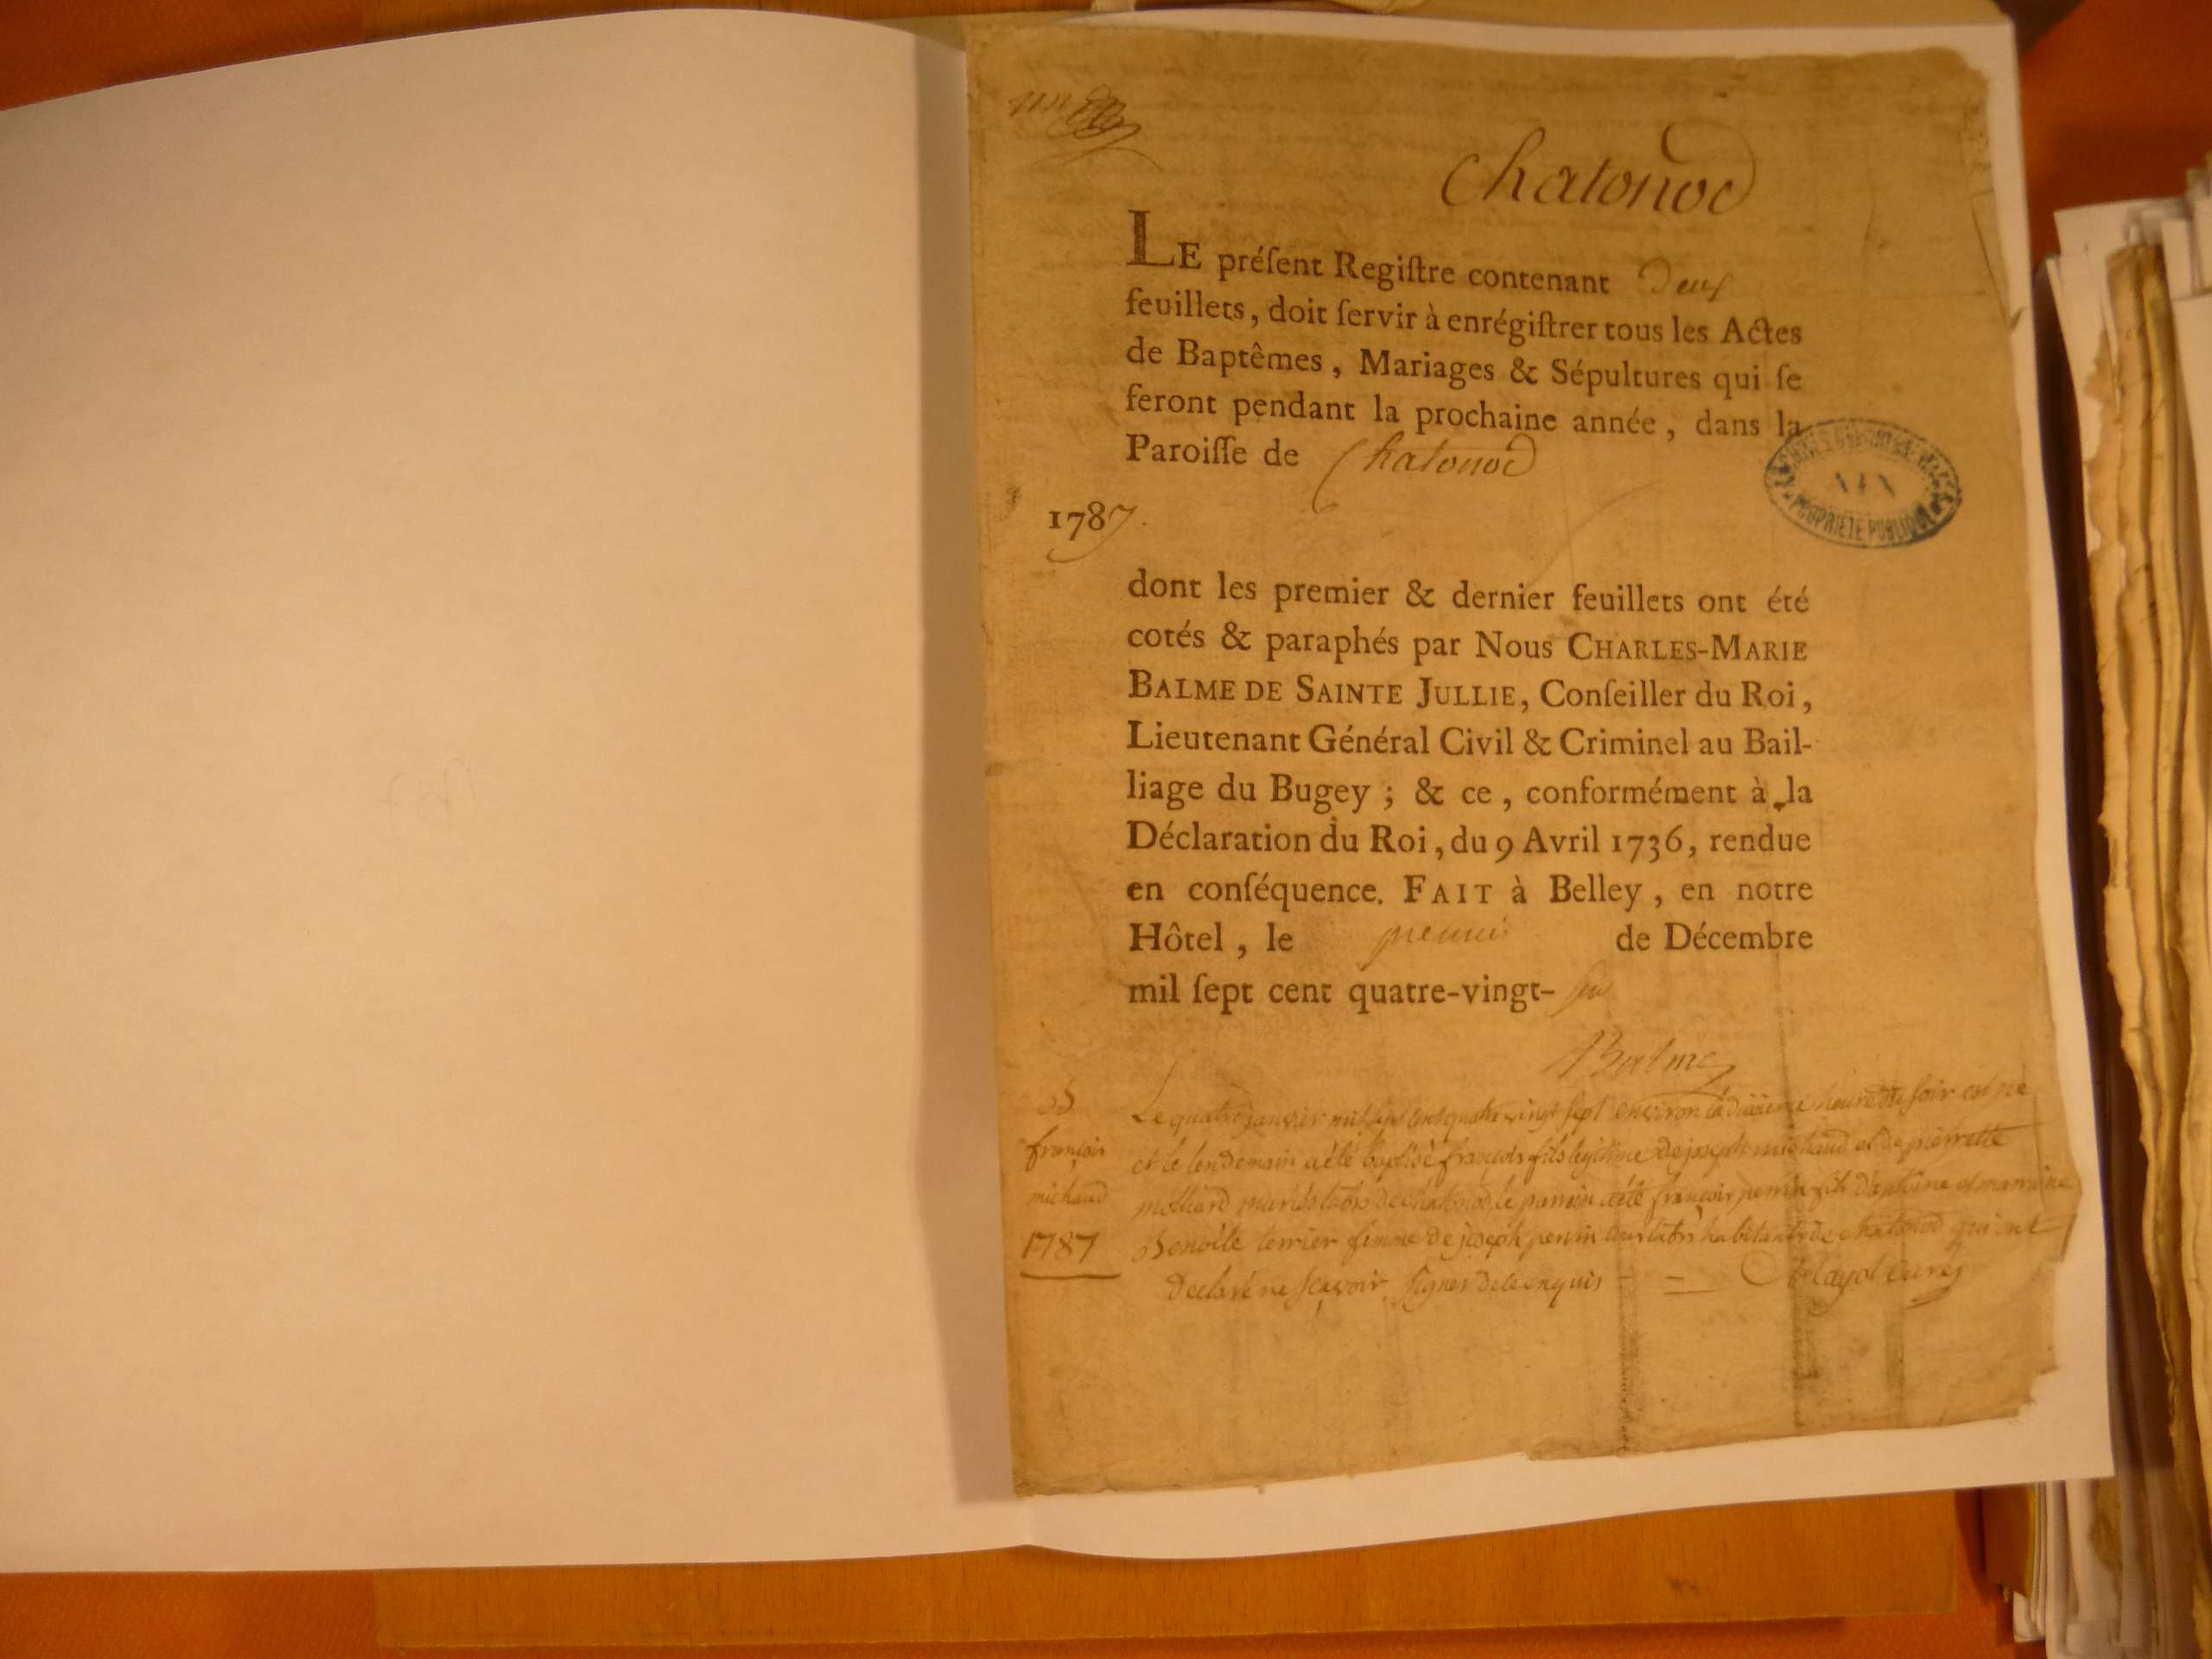 un
Chatonod
LE préſent Regiſtre contenant Deux
feuillets, doit ſervir à enrégiſtrer tous les Actes
de Baptêmes, Mariages & Sépultures qui ſe
feront pendant la prochaine année, dans la
Paroiſſe de Chatonod
1787.
ARCHIVES DÉPARTEMENTALES
AIN
PROPRIÉTÉ PUBLIQUE
dont les premier & dernier feuillets ont été
cotés & paraphés par Nous CHARLES-MARIE
BALME DE SAINTE JULLIE, Conſeiller du Roi,
Lieutenant Général Civil & Criminel au Bail-
liage du Bugey ; & ce, conformément à la
Déclaration du Roi, du 9 Avril 1736, rendue
en conſéquence. FAIT à Belley, en notre
Hôtel, le premier de Décembre
mil ſept cent quatre-vingt-ſix
Balme
B
françois
michaud
1787
Le quatre janvier mil sept cent quatre vingt sept environ la dixieme heure du soir est né
et le lendemain a été baptisé françois fils legitime de joseph michaud et de pierrette
molliard mariés labrs de chatonod, le parrain a été françois perrin fils d'antoine et marraine
Benoite terrier femme de joseph perrin tous labrs habitants de chatonod qui ont
declaré ne sçavoir signer de ce enquis curé